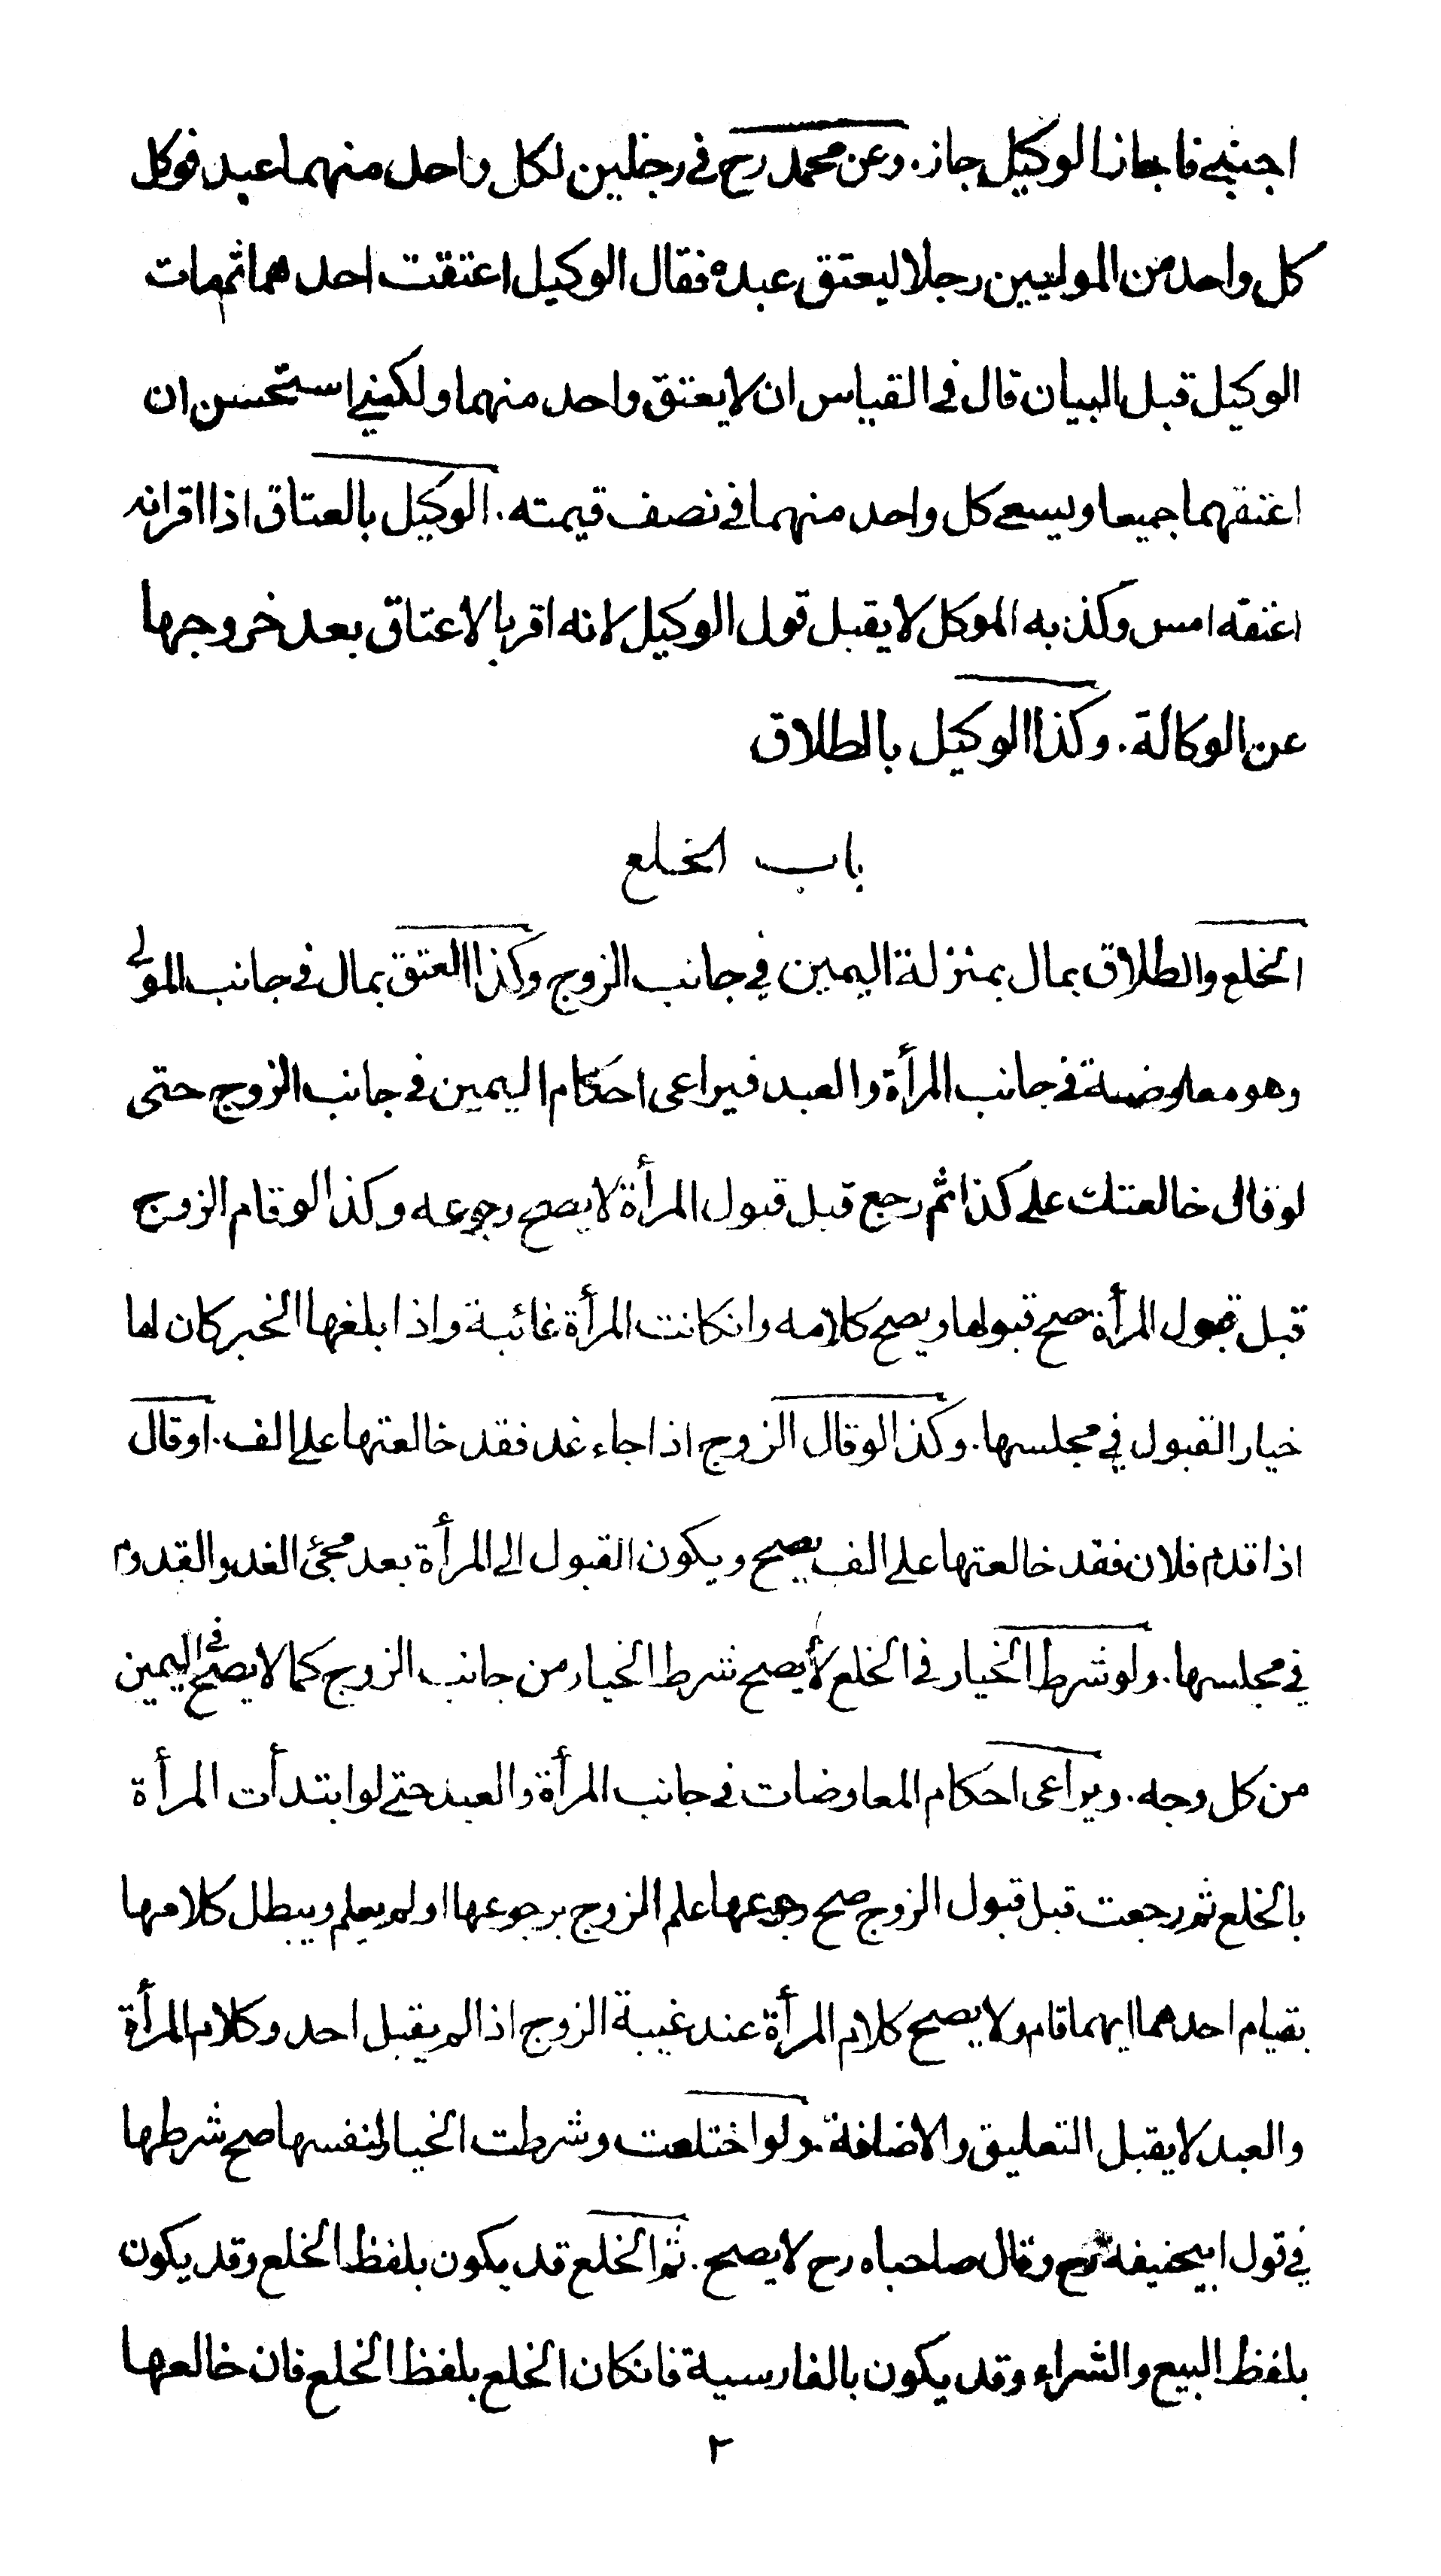 اجنبي فاجاز الوكيل جاز. وعن محمد رح في رجلين لكل واحد منهما عبد فوكل
كل واحد من الموليين رجلا ليعتق عبده فقال الوكيل اعتقت احدهما ثم مات
الوكيل قبل البيان قال في القياس ان لا يعتق واحد منهما ولكني استحسن ان
اعتقهما جميعا ويسعى كل واحد منهما في نصف قيمته. الوكيل بالعتاق اذا اقر انه
اعتقه امس وكذبه الموكل لا يقبل قول الوكيل لانه اقر بالاعتاق بعد خروجها
عن الوكالة. وكذا الوكيل بالطلاق
باب الخلع
الخلع والطلاق بمال بمنزلة اليمين في جانب الزوج وكذا العتق بمال في جانب المولى
وهو معاوضة في جانب المرأة والعبد فيراعى احكام اليمين في جانب الزوج حتى
لو قال خالعتك على كذا ثم رجع قبل قبول المرأة لا يصح رجوعه وكذا لو قام الزوج
قبل قبول المرأة صح قبولها ويصح كلامه وانكانت المرأة غائبة واذا بلغها الخبر كان لها
خيار القبول في مجلسها. وكذا لو قال الزوج اذا جاء غد فقد خالعتها على الف. او قال
اذا قدم فلان فقد خالعتها على الف يصح ويكون القبول الى المرأة بعد مجئ الغد والقدوم
في مجلسها. ولو شرط الخيار في الخلع لا يصح شرط الخيار من جانب الزوج كما لا يصح في اليمين
من كل وجه. ويراعى احكام المعاوضات في جانب المرأة والعبد حتى لو ابتدأت المرأة
بالخلع ثم رجعت قبل قبول الزوج صح رجوعها علم الزوج برجوعها او لم يعلم ويبطل كلامها
بقيام احدهما ايهما قام ولا يصح كلام المرأة عند غيبة الزوج اذا لم يقبل احد وكلام المرأة
والعبد لا يقبل التعليق والاضافة. ولو اختلعت وشرطت الخيار لنفسها صح شرطها
في قول ابيحنيفه رح وقال صاحباه رح لا يصح. ثم الخلع قد يكون بلفظ الخلع وقد يكون
بلفظ البيع والشراء وقد يكون بالفارسية فانكان الخلع بلفظ الخلع فان خالعها
٢